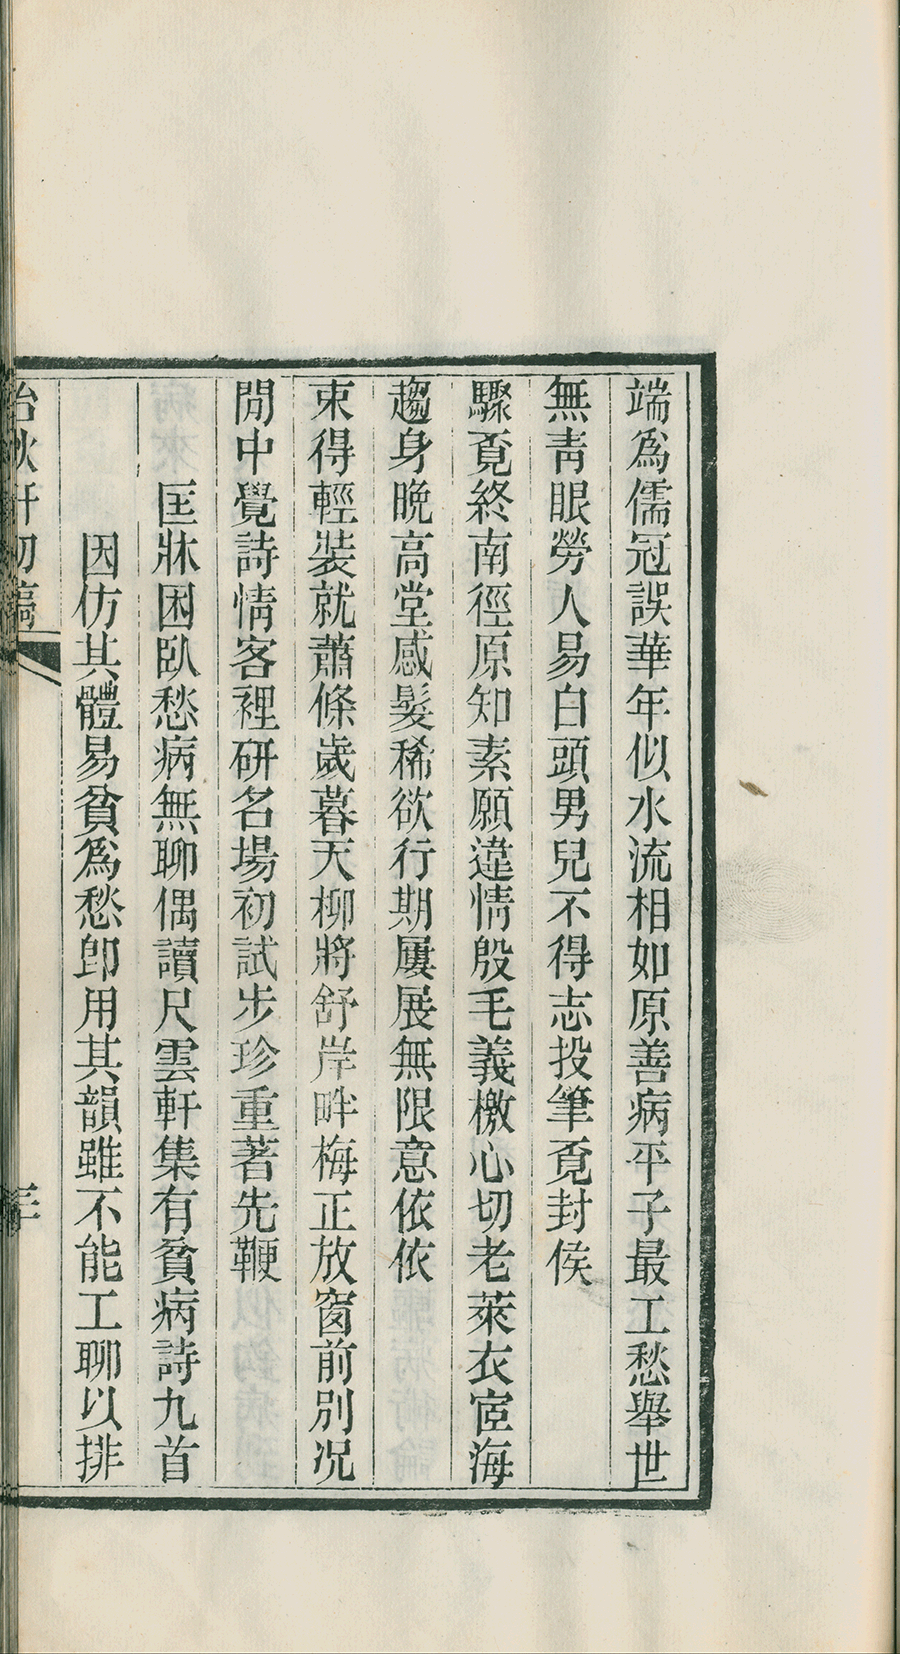 端爲儒冠誤華年似水流相如原善病平子最工愁舉世
無青眼勞人易白頭男兒不得志投筆覓封侯
驟覓終南徑原知素願違情殷毛義檄心切老萊衣宦海
趨身晚高堂感髮稀欲行期屢展無限意依依
束得輕裝就蕭條歲暮天柳將舒岸畔梅正放窗前別况
閒中覺詩情客裡研名場初試步珍重著先鞭
匡牀困臥愁病無聊偶讀尺雲軒集有貧病詩九首
因仿其體易貧爲愁卽用其韻雖不能工聊以排
秋軒初稿